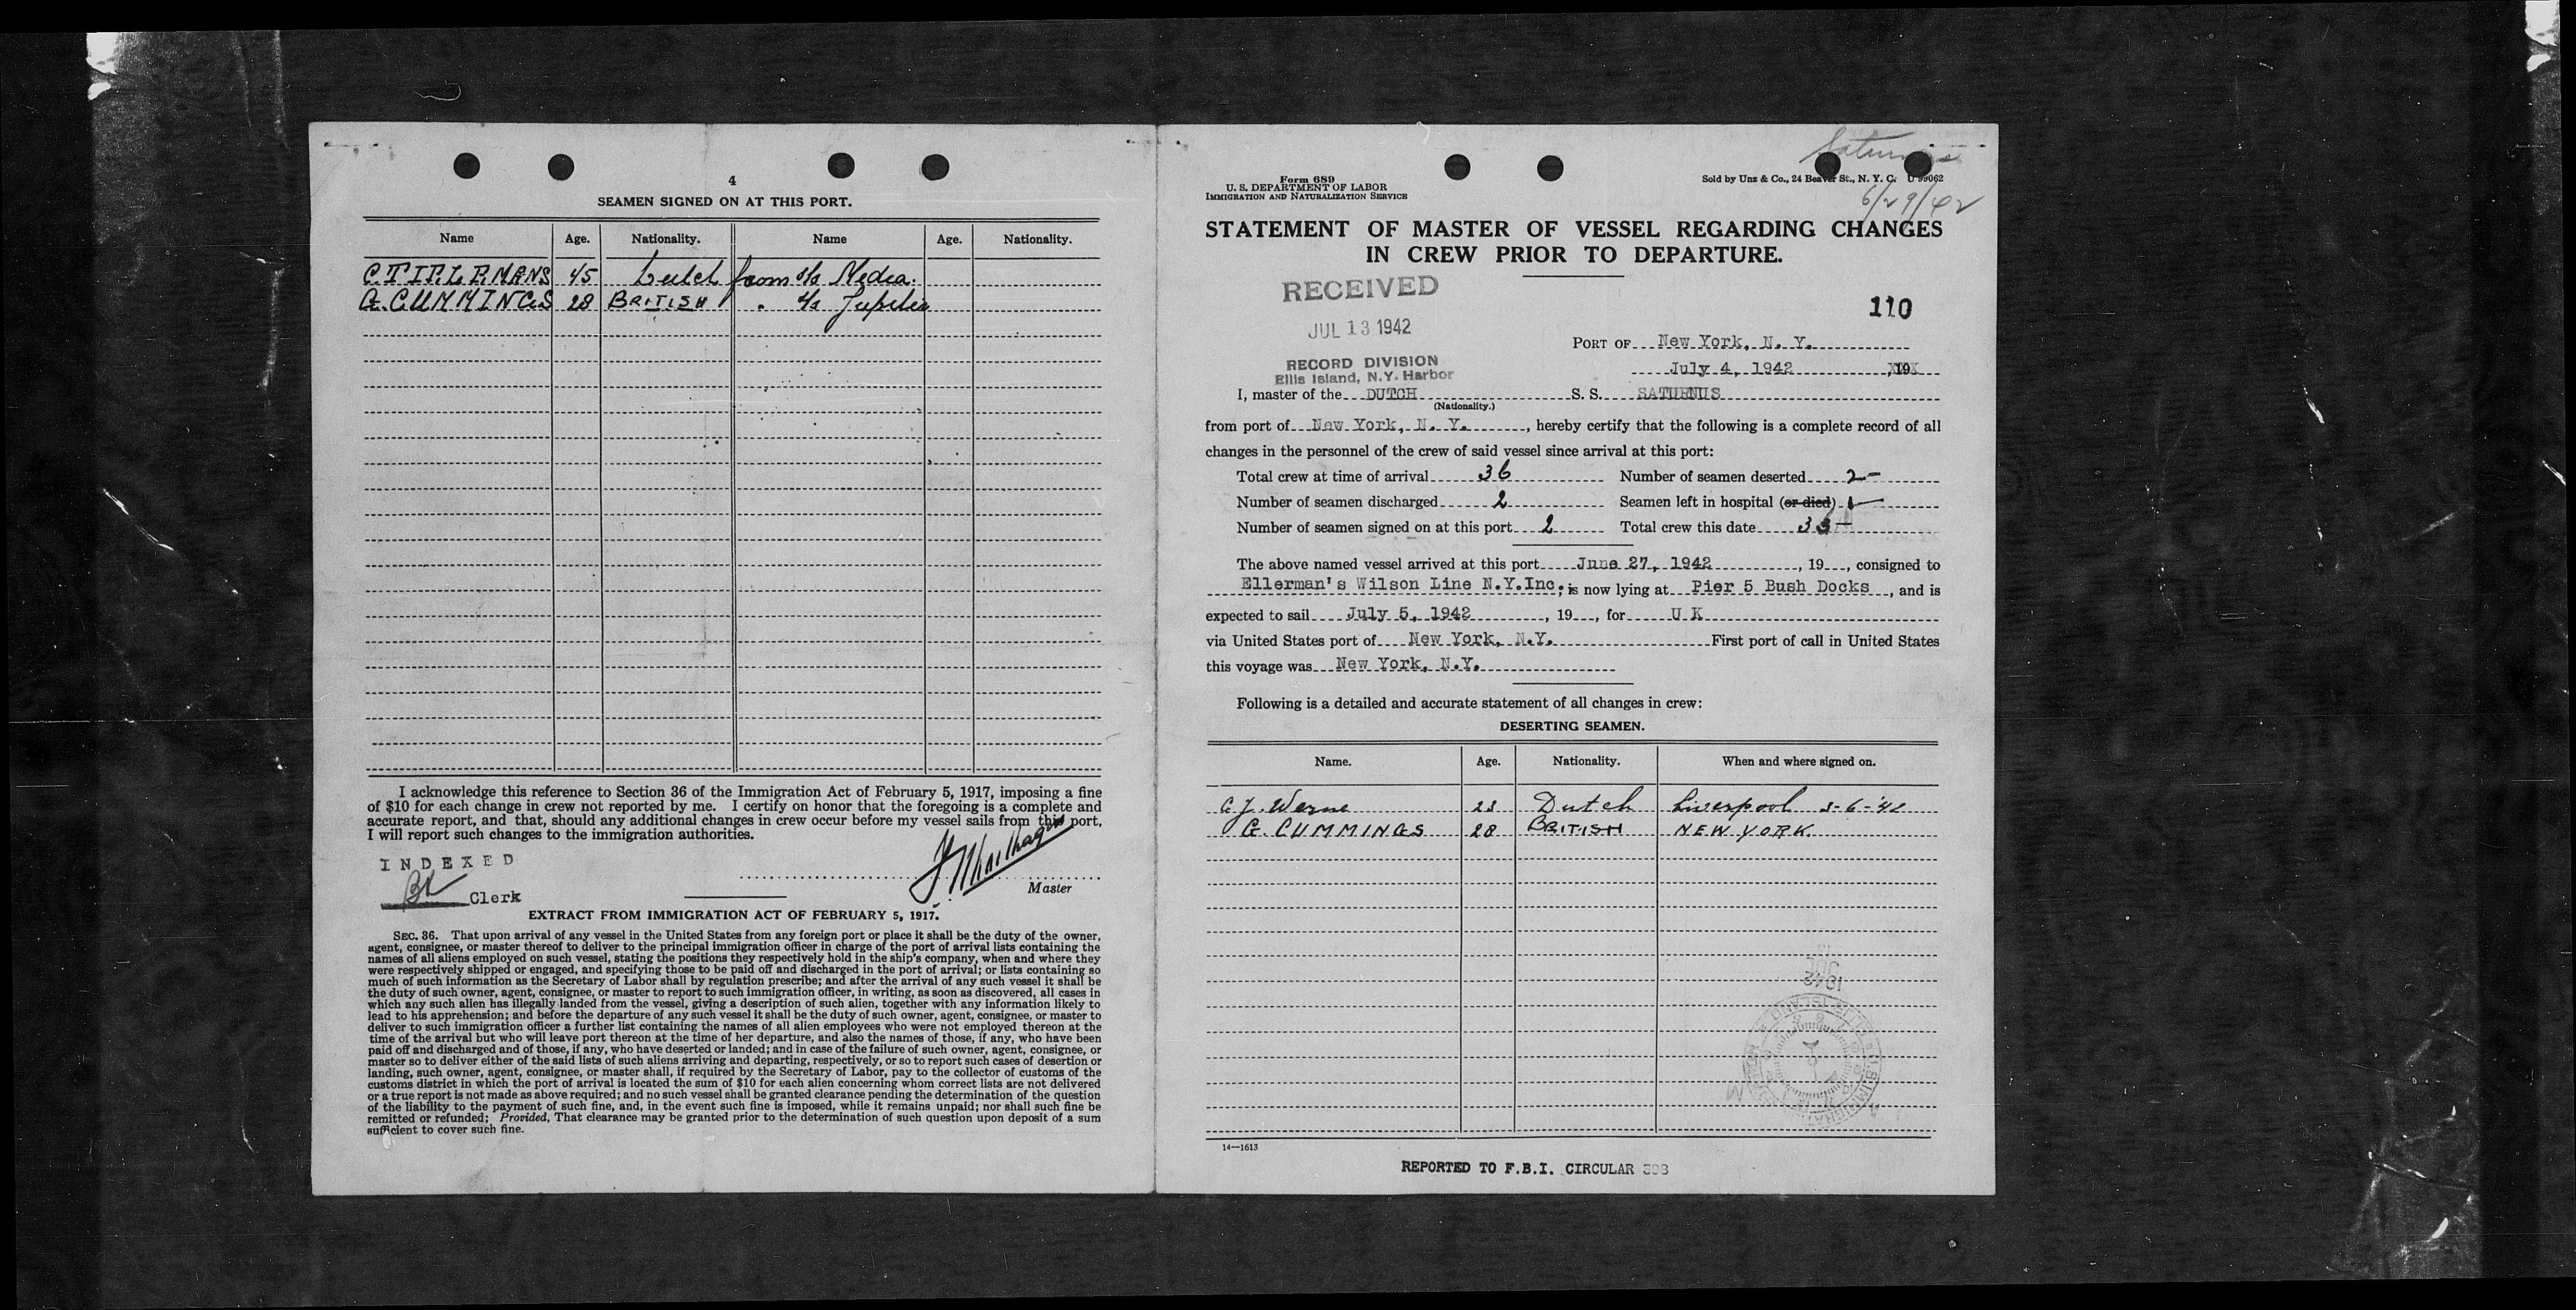 4
SEAMEN SIGNED ON AT THIS PORT.
Name Age. Nationality. Name Age. Nationality.
C. TIELEMANS 45 Dutch from s/s Medea.
G. CUMMINGS 28 BRITISH " s/s Jupiter
I acknowledge this reference to Section 36 of the Immigration Act of February 5, 1917, imposing a fine
of $10 for each change in crew not reported by me. I certify on honor that the foregoing is a complete and
accurate report, and that, should any additional changes in crew occur before my vessel sails from this port,
I will report such changes to the immigration authorities.
INDEXED
Clerk
Master
EXTRACT FROM IMMIGRATION ACT OF FEBRUARY 5, 1917.
SEC. 36. That upon arrival of any vessel in the United States from any foreign port or place it shall be the duty of the owner,
agent, consignee, or master thereof to deliver to the principal immigration officer in charge of the port of arrival lists containing the
names of all aliens employed on such vessel, stating the positions they respectively hold in the ship's company, when and where they
were respectively shipped or engaged, and specifying those to be paid off and discharged in the port of arrival; or lists containing so
much of such information as the Secretary of Labor shall by regulation prescribe; and after the arrival of any such vessel it shall be
the duty of such owner, agent, consignee, or master to report to such immigration officer, in writing, as soon as discovered, all cases in
which any such alien has illegally landed from the vessel, giving a description of such alien, together with any information likely to
lead to his apprehension; and before the departure of any such vessel it shall be the duty of such owner, agent, consignee, or master to
deliver to such immigration officer a further list containing the names of all alien employees who were not employed thereon at the
time of the arrival but who will leave port thereon at the time of her departure, and also the names of those, if any, who have been
paid off and discharged and of those, if any, who have deserted or landed; and in case of the failure of such owner, agent, consignee, or
master so to deliver either of the said lists of such aliens arriving and departing, respectively, or so to report such cases of desertion or
landing, such owner, agent, consignee, or master shall, if required by the Secretary of Labor, pay to the collector of customs of the
customs district in which the port of arrival is located the sum of $10 for each alien concerning whom correct lists are not delivered
or a true report is not made as above required; and no such vessel shall be granted clearance pending the determination of the question
of the liability to the payment of such fine, and, in the event such fine is imposed, while it remains unpaid; nor shall such fine be
remitted or refunded; Provided, That clearance may be granted prior to the determination of such question upon deposit of a sum
sufficient to cover such fine.
Saturnus
6/29/42
Form 689
U. S. DEPARTMENT OF LABOR
IMMIGRATION AND NATURALIZATION SERVICE
Sold by Unz & Co., 24 Beaver St., N. Y. C. U 99062
STATEMENT OF MASTER OF VESSEL REGARDING CHANGES
IN CREW PRIOR TO DEPARTURE.
RECEIVED
JUL 13 1942
RECORD DIVISION
Ellis Island, N.Y. Harbor
110
PORT OF New York, N. Y.
July 4, 1942 , 19
I, master of the DUTCH S. S. SATURNUS
(Nationality.)
from port of New York, N. Y. , hereby certify that the following is a complete record of all
changes in the personnel of the crew of said vessel since arrival at this port:
Total crew at time of arrival 36 Number of seamen deserted 2-
Number of seamen discharged 2 Seamen left in hospital (or died) 1
Number of seamen signed on at this port 2 Total crew this date 33-
The above named vessel arrived at this port June 27, 1942 , 19 , consigned to
Ellerman's Wilson Line N.Y.Inc. ; is now lying at Pier 5 Bush Docks , and is
expected to sail July 5, 1942 , 19 , for U K
via United States port of New York, N.Y. First port of call in United States
this voyage was New York, N.Y.
Following is a detailed and accurate statement of all changes in crew:
DESERTING SEAMEN.
Name. Age. Nationality. When and where signed on.
C. J. Werne 23 Dutch Liverpool 3-6-'42
G. CUMMINGS 28 BRITISH NEW YORK.
1942
14—1613
REPORTED TO F.B.I. CIRCULAR